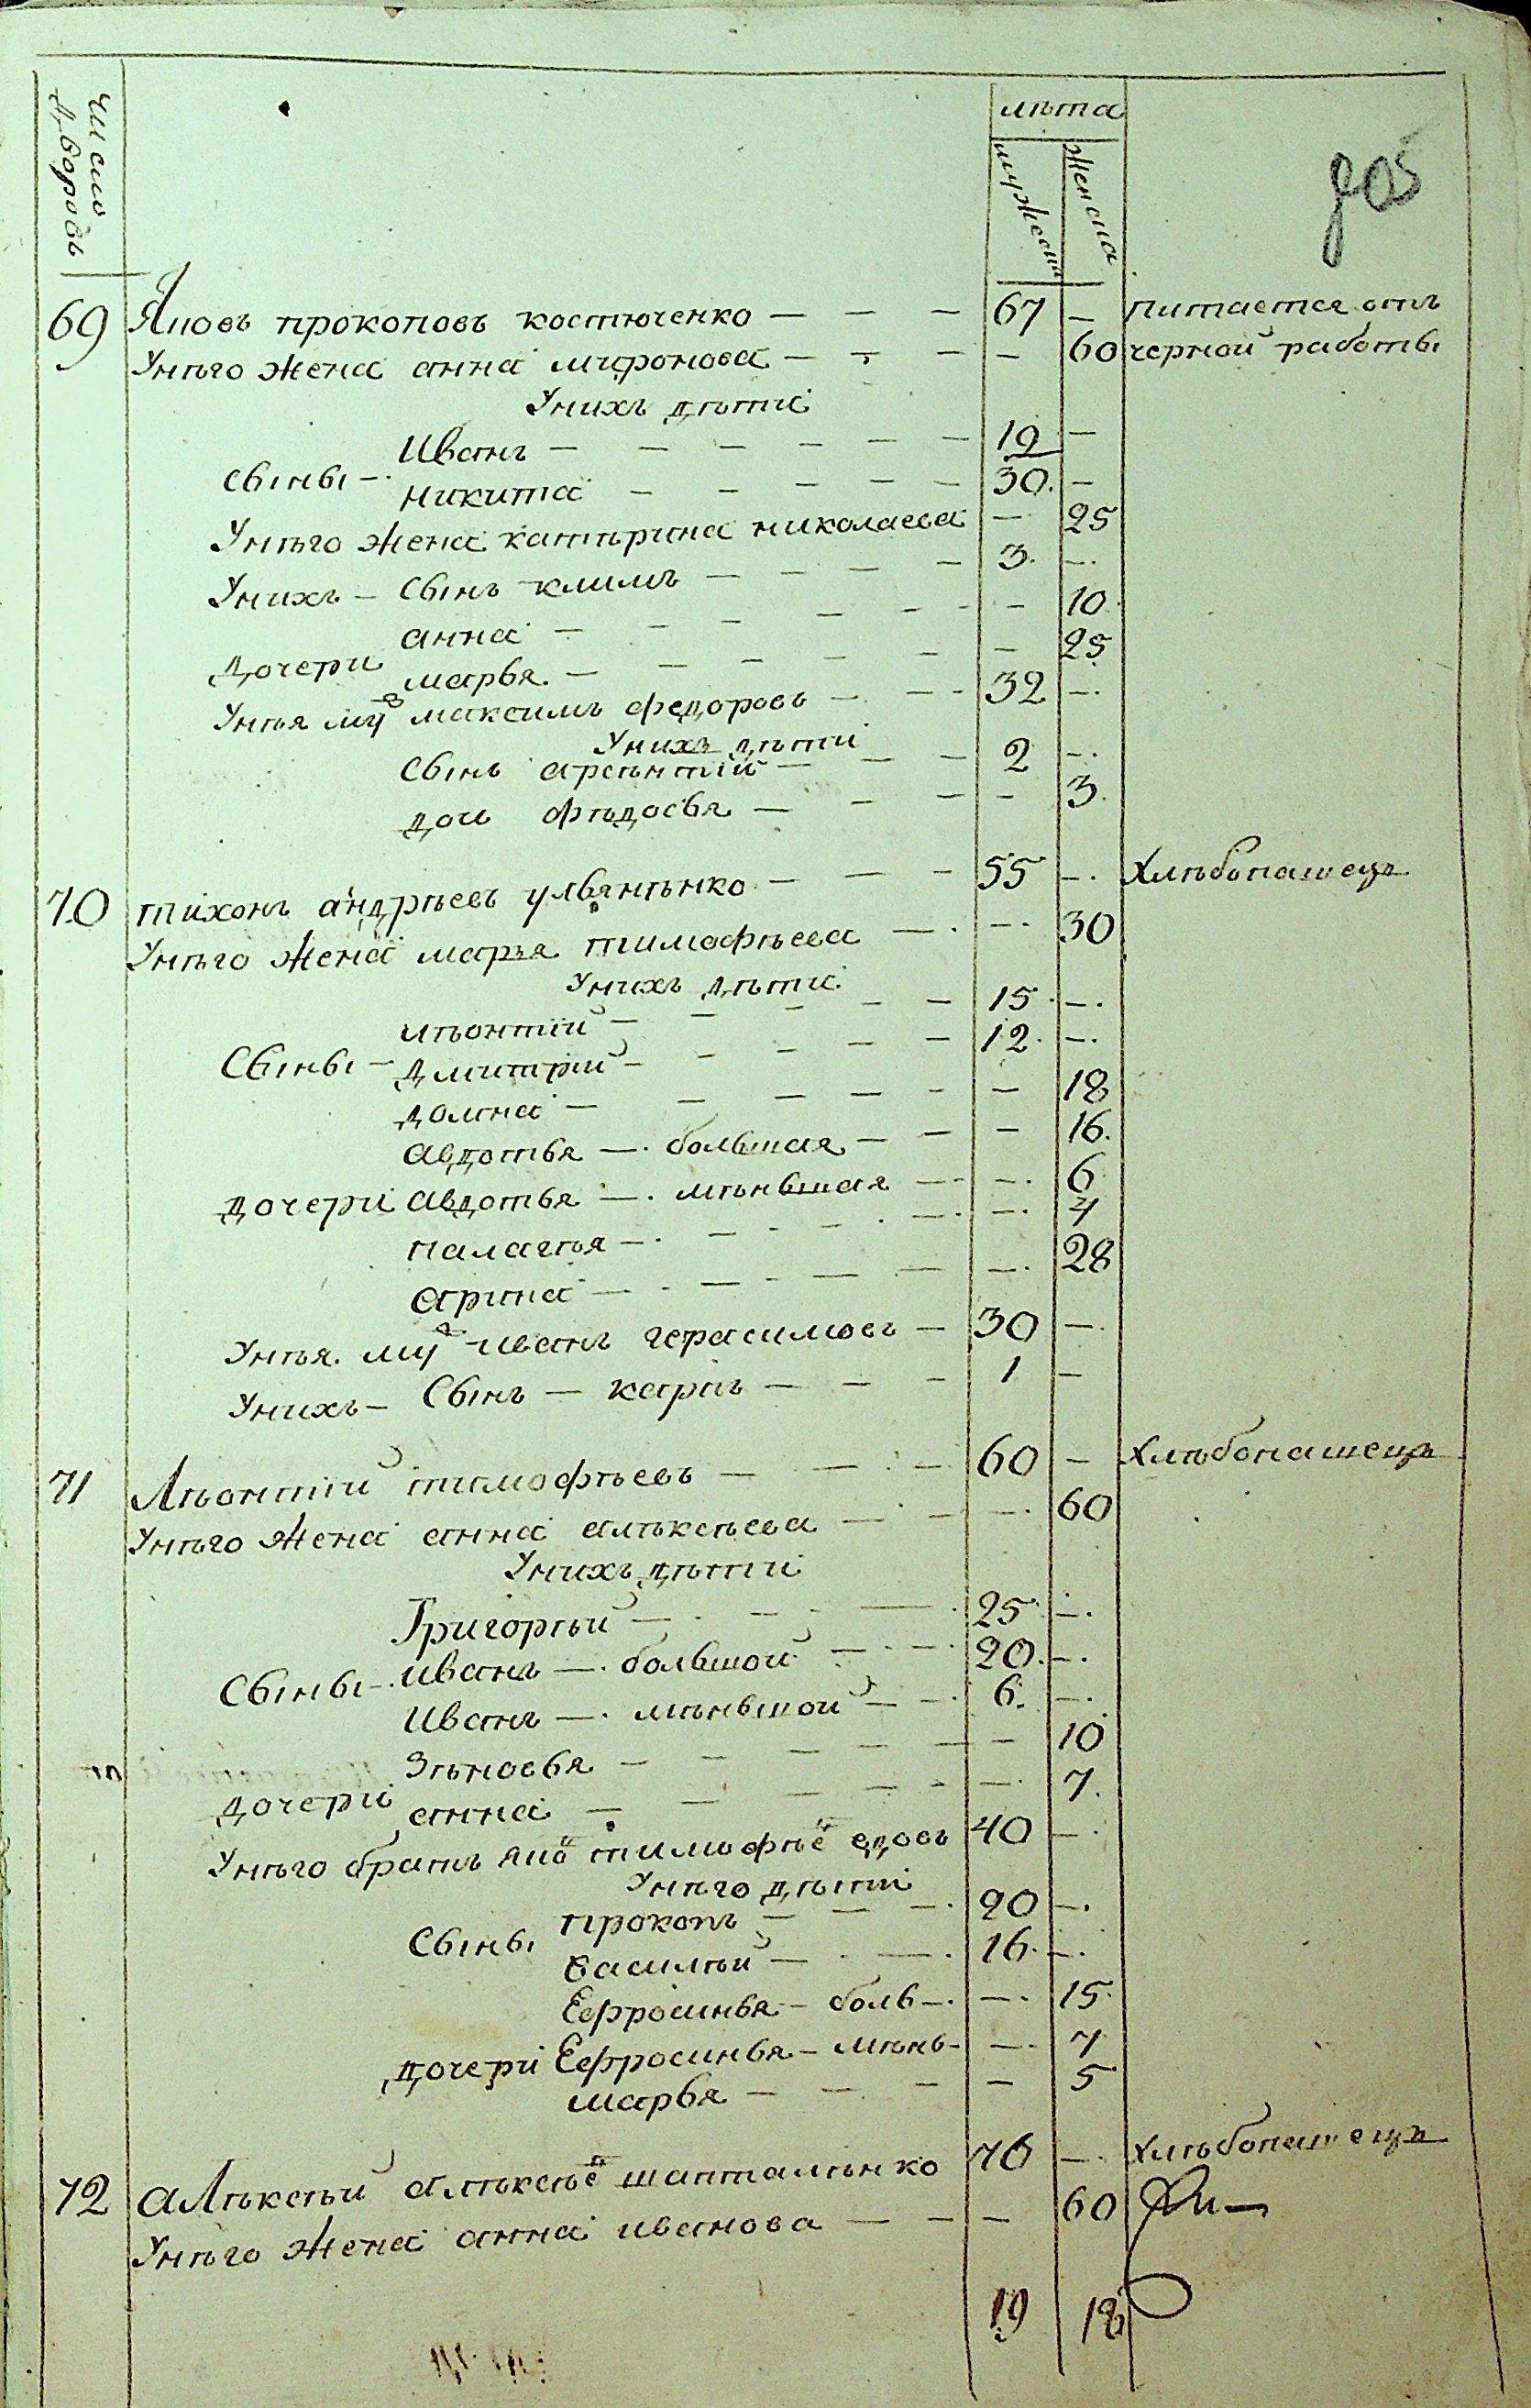 число дворовъ
лѣта
мужеска
женска
69 Яковъ прокоповъ костюченко — — — 67 — питается отъ
Унѣго жена анна миронова — — — — 60 черной работы
Унихъ дѣти
Иванъ — — — — — — 19 —
сыны —
никита — — — — — 30. —
Унѣго жена катѣрина николаева — 25
Унихъ — сынъ климъ — — — — 3. —.
анна — — — — — — — 10
дочери
марья. — — — — — — 25
Унѣя му ж максимъ федоровъ — — — 32 —.
Унихъ дѣти
сынъ арсѣнтій — — — 2 —.
дочь фѣдосья — — — — 3.
70 тихонъ андрѣевъ ульянѣнко — — — 55 —. Хлѣбопашецъ
Унѣго жена марья тимофѣева —. —. 30
Унихъ дѣти
лѣонтій — — — — — 15. —.
Сыны — дмитрій — — — — — 12. —.
домна — — — — — — 18
авдотья —. большая — — — 16.
дочери авдотья —. мѣньшая —. —. 6
палагѣя —. — — — —. —. 4
арина — — — — — —. 28
Унѣя. му ж иванъ герасимовъ — 30 —.
Унихъ — Сынъ — карпъ — — — 1 —
71 Лѣонтій тимофѣевъ — — — 60 — Хлѣбопашецъ
Унѣго жена анна алѣксѣева — — —. 60
Унихъ дѣти
Григорѣй — — — 25 —.
Сыны —. иванъ —. большой — — 20. —.
Иванъ —. мѣньшой — — 6. —.
Зѣновья — — — — — — 10
дочери
анна — — — — —. 7.
Унѣго братъ яко в тимофѣе в вдовъ 40 —.
Унѣго дѣти
прокопъ — — — 20 —.
Сыны
василѣй — — 16. —.
Ефросинья — боль —. —. 15.
дочери Ефросинья — мѣнь — —. 7
марья — — — — 5
72 алѣксѣй алѣксѣе в шапталѣнко 70 —. хлѣбопашецъ
Унѣго жена анна иванова — — — 60
19 18